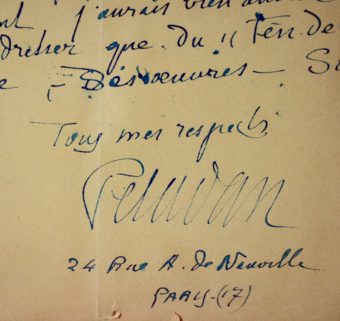 j'aurais bien
dresser que du "Fén. de
- Désœuvrés -
Tous mes respects
Peladan
24 Rue A. de Neuville
PARIS-(17)